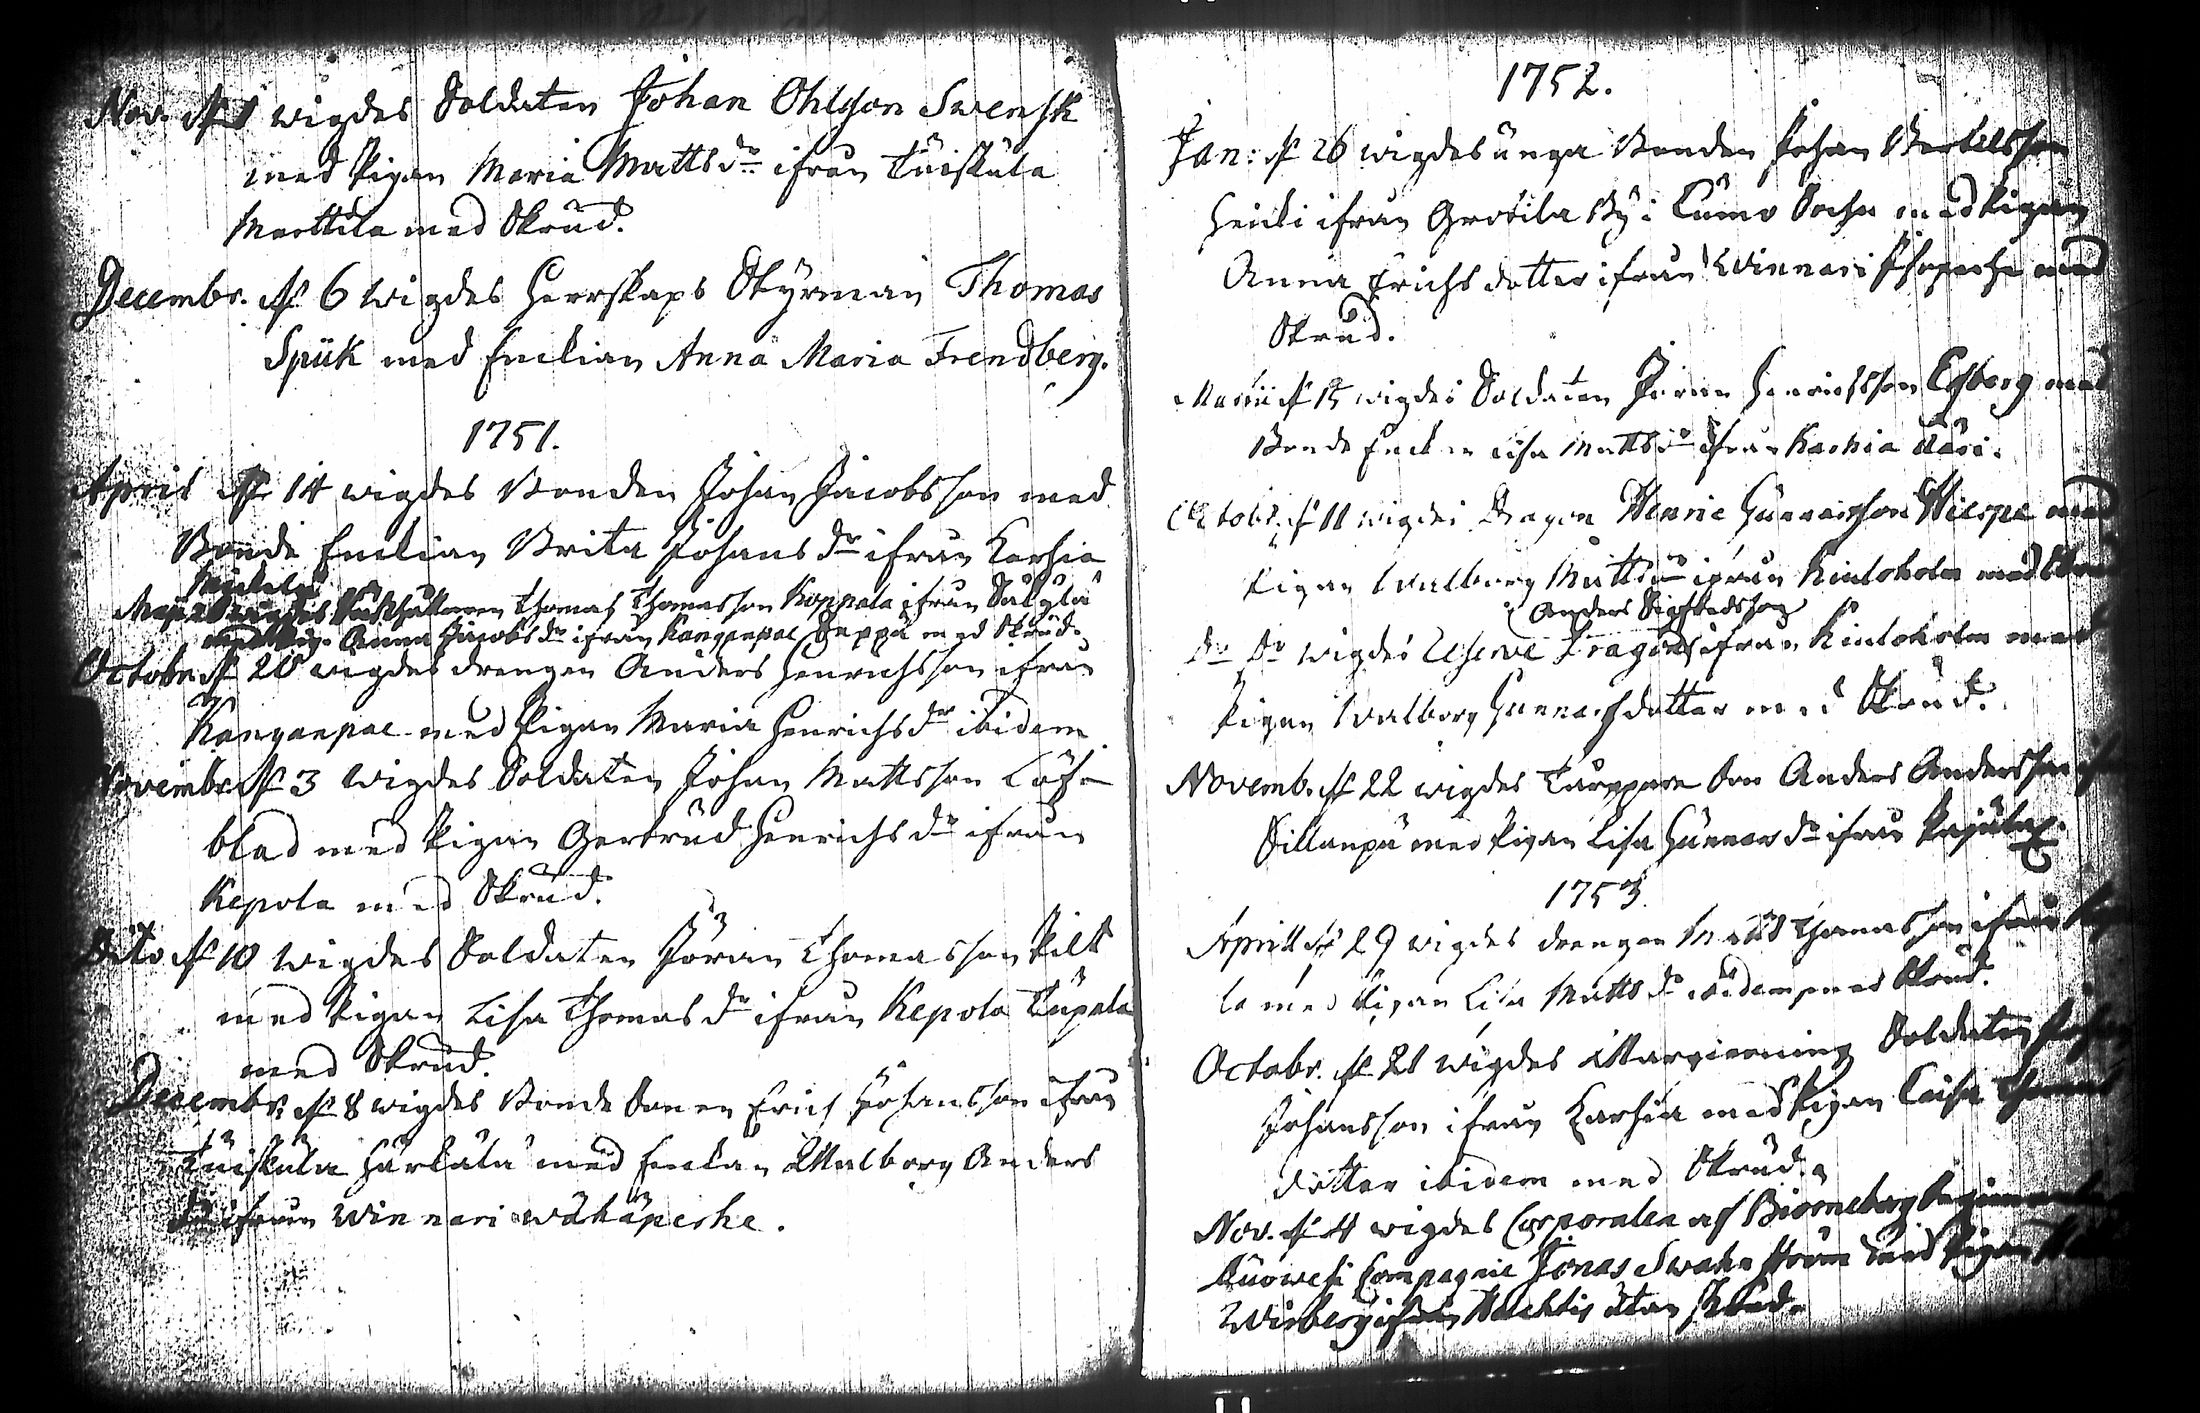 Nov. d. 8 wigdes Soldaten Johan Ohlsson Swensk
med Pigan Maria Mattsdr ifrån Tuiskula
Marttila med Skrud.
Decembr. d. 6 wigdes Herrskaps Styrman Thomas
Spük med Enckian Anna Maria Frendberg.
1751.
April d. 14 wigdes Bonden Johan Jacobsson med
Bonde Enckian Brita Johansdr ifrån Karhia
Thomas Thomasson Koppala ifrån Sälylä
Anna Jacobsdr ifrån Kanganpae Seppä med Skrud.
Octobr. d. 20 wigdes drengen Anders Henrichsson ifrån
Kanganpae med Pigan Maria Henrichsdr ibidem
Novembr. d. 3 wigdes Soldaten Johan Mattsson Löf-
blad med Pigan Gertrud Henrichsdr ifrån
Kepola med Skrud.
Dito d. 10 wigdes Soldaten Jöran Thomasson Pilt
med Pigan Lisa Thomasdr ifrån Kepola Tupala
med Skrud.
Decembr. d. 8 wigdes Bonde Sonen Erich Johansson ifrån
Tuiskula Härkälä med Enckan Walborg Anders
dr ifrån Winnari wähäperhe.
1752.
Jan: d. 26 wigdes unga Bonden Johan Bertilsson
Heicki ifrån Groiila By i Cumo Sochn med Pigan
Anna Erichsdotter ifrån Winnari Isoperhe med
Skrud.
Martii d. 15 wigdes Soldaten Jöran Henrichsson Esberg med
Bonde Enckan Lisa Mattsdr ifrån Karhia
Octobr. d. 11 wigdes Dragon Henric Gunnarsson Wiespe med
Pigan Walborg Mattsdr ifrån Kiuloholm med
Anders Sigfredsson
Do Do wigdes Reserve Dragon ifrån Kiuloholm med
Pigan Walborg Gunnarsdotter med Skrud.
Novemb. d. 22 wigdes Torppare Son Anders Andersson
Sillanpä med Pigan Lisa Gunnarsdr ifrån Pajula
1753.
Aprill d. 29 wigdes drengen Matts Thomasson ifrån
la med Pigan Lisa Mattsdr ibidem med Skrud.
Octobr. d. 21 wigdes Wargierning Soldaten
Johansson ifrån Karhia med Pigan Caisa
dotter ibidem med Skrud.
Nov. d. 4 wigdes Corporalen af Biörneborg
Ruowesi Compagnie Jonas Swahnström med Pigan
Wirberg ifrån utan Skrud.